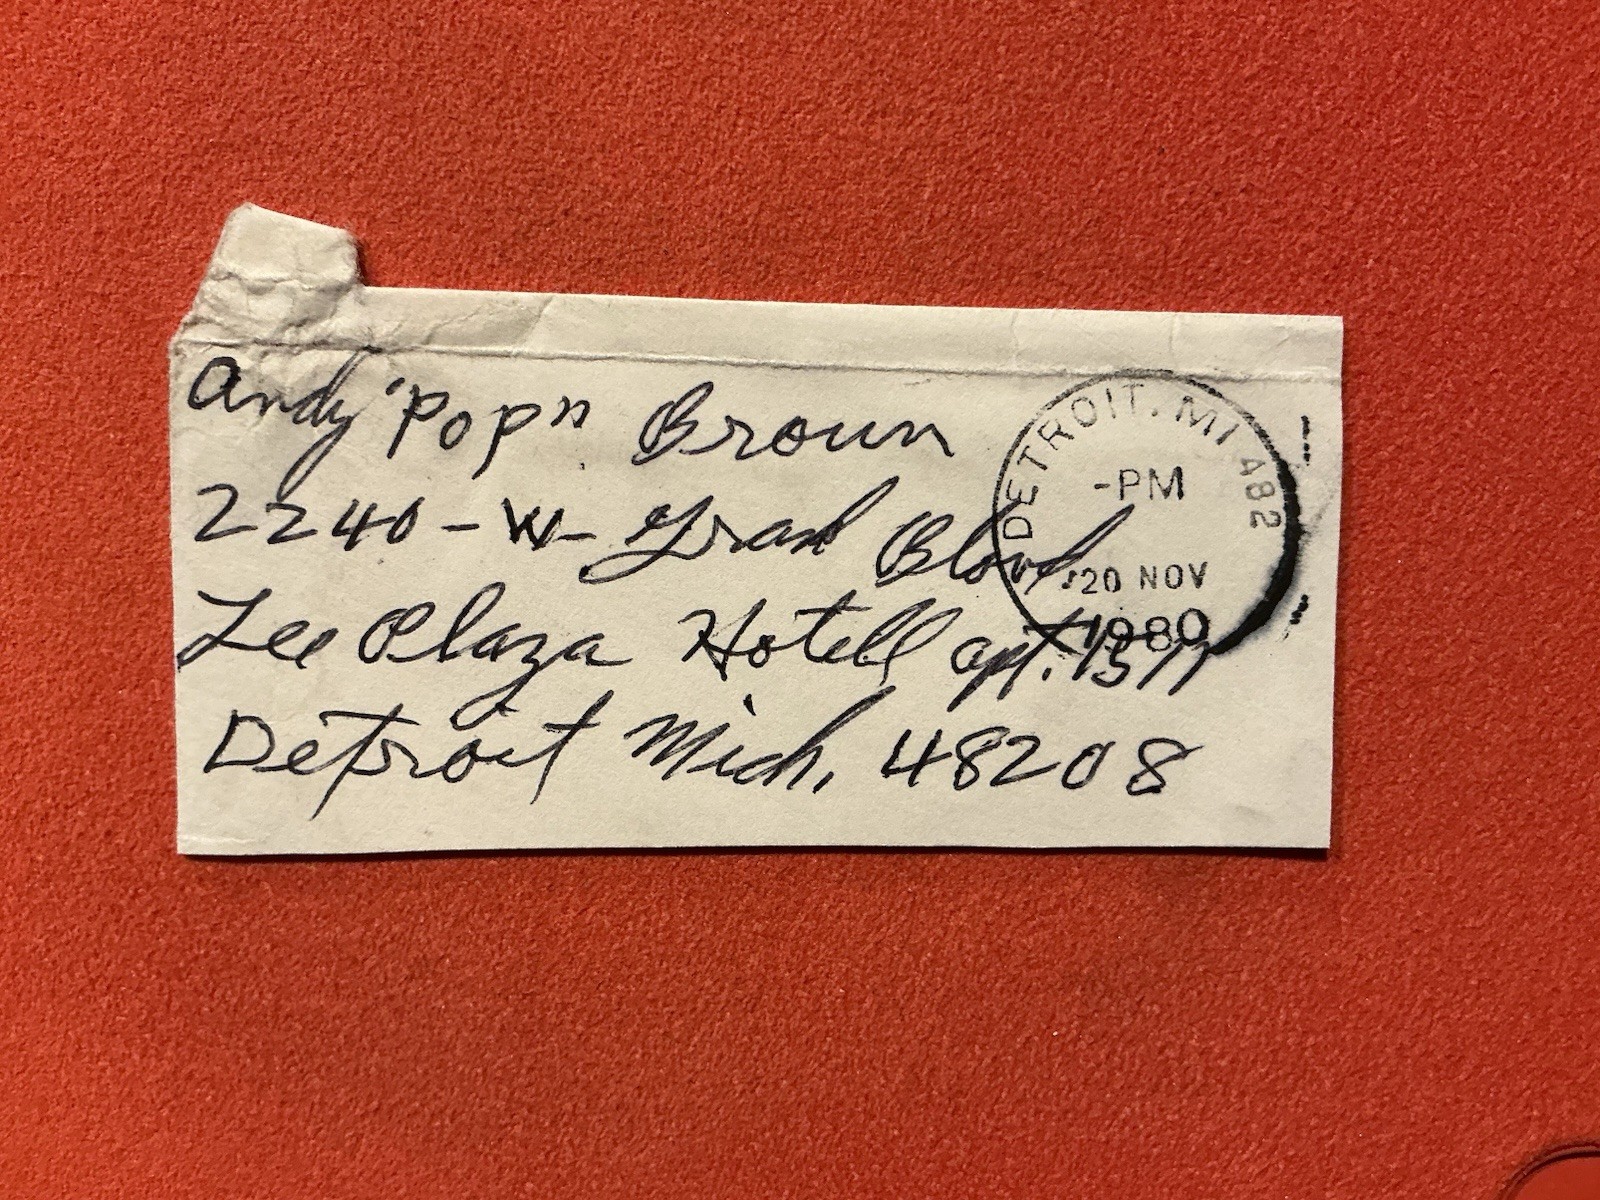 Andy "Pop" Brown
2240-W-Grand Blovd
Lee Plaza Hotell apt. 1511
Detroit Mich. 48208
DETROIT, MI 482
-PM
20 NOV
1980